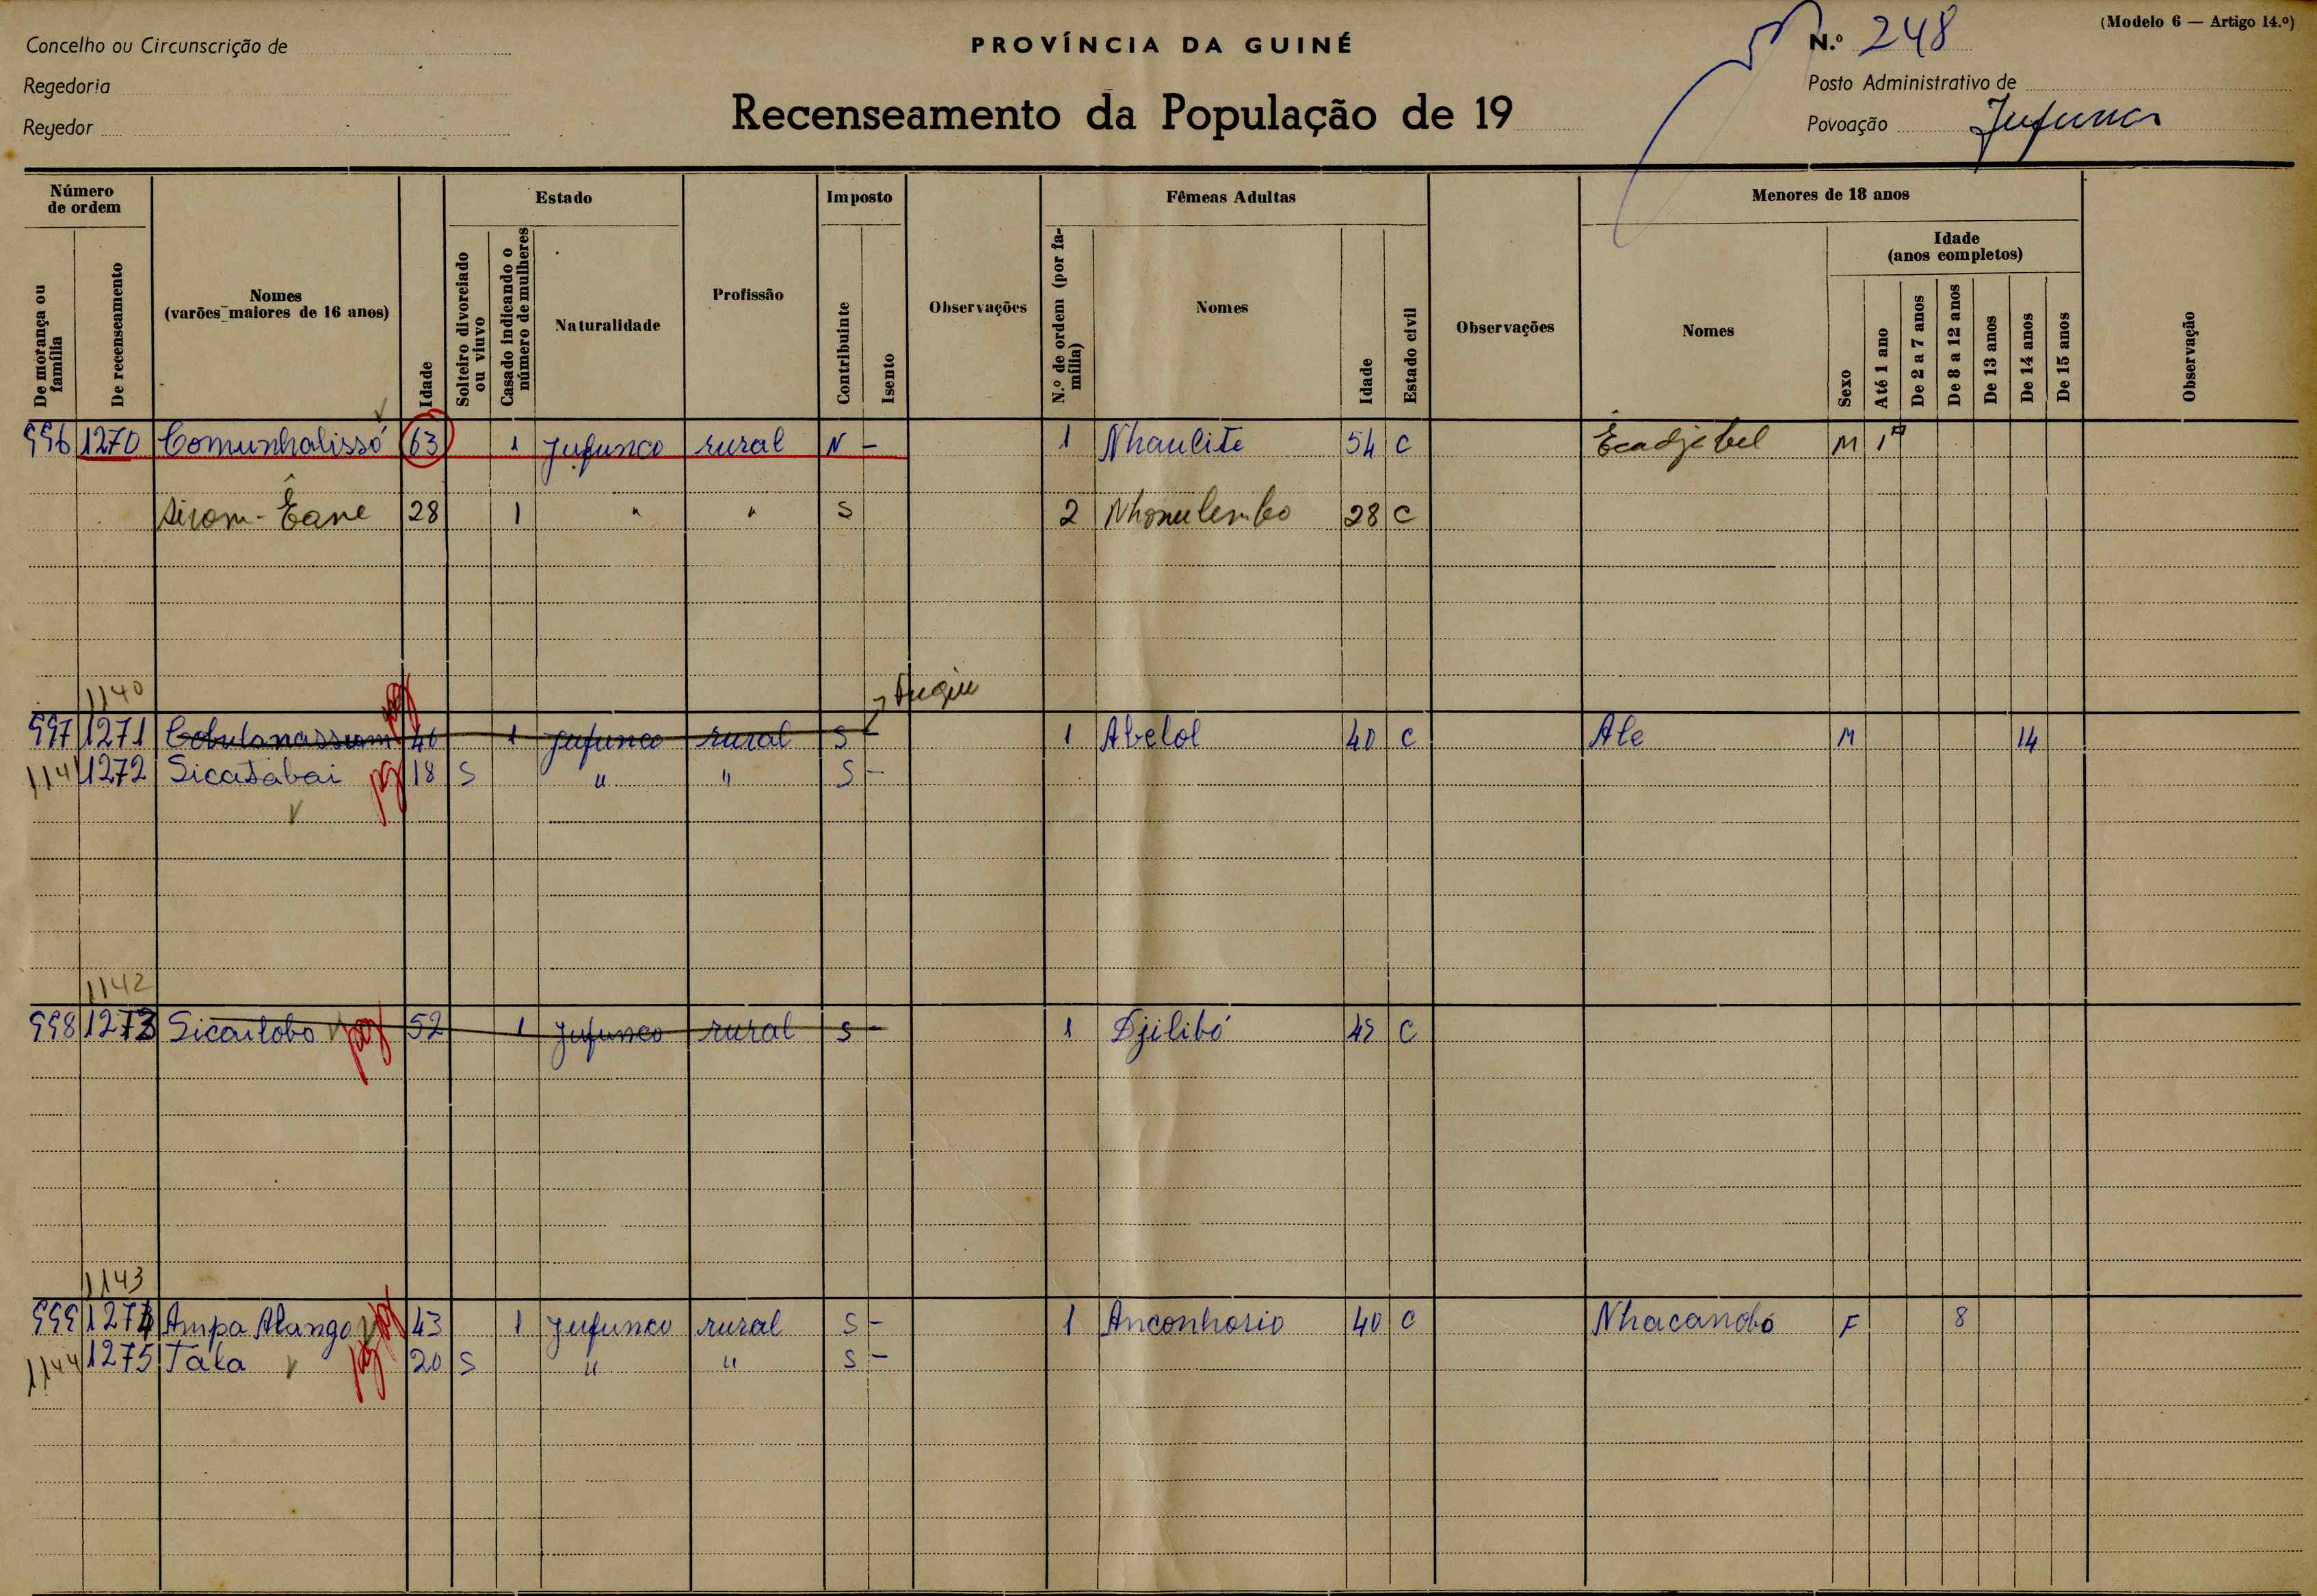 (Modelo 6 — Artigo 14.º)
Concelho ou Circunscrição de
PROVÍNCIA DA GUINÉ
N.º 248
Regedoria
Posto Administrativo de
Recenseamento da População de 19
Regedor
Povoação Jufunco
Número de ordem
Estado
Imposto
Fêmeas Adultas
Menores de 18 anos
Idade (anos completos)
De morança ou família
De recenseamento
Nomes (varões maiores de 16 anos)
Idade
Solteiro divorciado ou viuvo
Casado indicando o número de mulheres
Naturalidade
Profissão
Contribuinte
Isento
Observações
N.º de ordem (por família)
Nomes
Idade
Estado civil
Observações
Nomes
Sexo
Até 1 ano
De 2 a 7 anos
De 8 a 12 anos
De 13 anos
De 14 anos
De 15 anos
Observação
996 1270 Comunhalissó 63 1 Jufunco rural N - 1 Nhaulite 54 C Êcadjebel M 1
Sirom-Êane 28 1 " " S 2 Nhonulembo 28 C
1140
997 1271 Cobulonassum 46 1 Jufunco rural S - 1 Abelol 40 C Ale M 14
1141 1272 Sicatabai pg 18 S " " S -
1142
998 1273 Sicailobo pg 52 1 Jufunco rural S - 1 Djilibó 45 C
1143
999 1274 Ampa Alango pg 43 1 Jufunco rural S - 1 Anconhorio 40 C Nhacanobó F 8
1144 1275 Taka pg 20 S " " S -